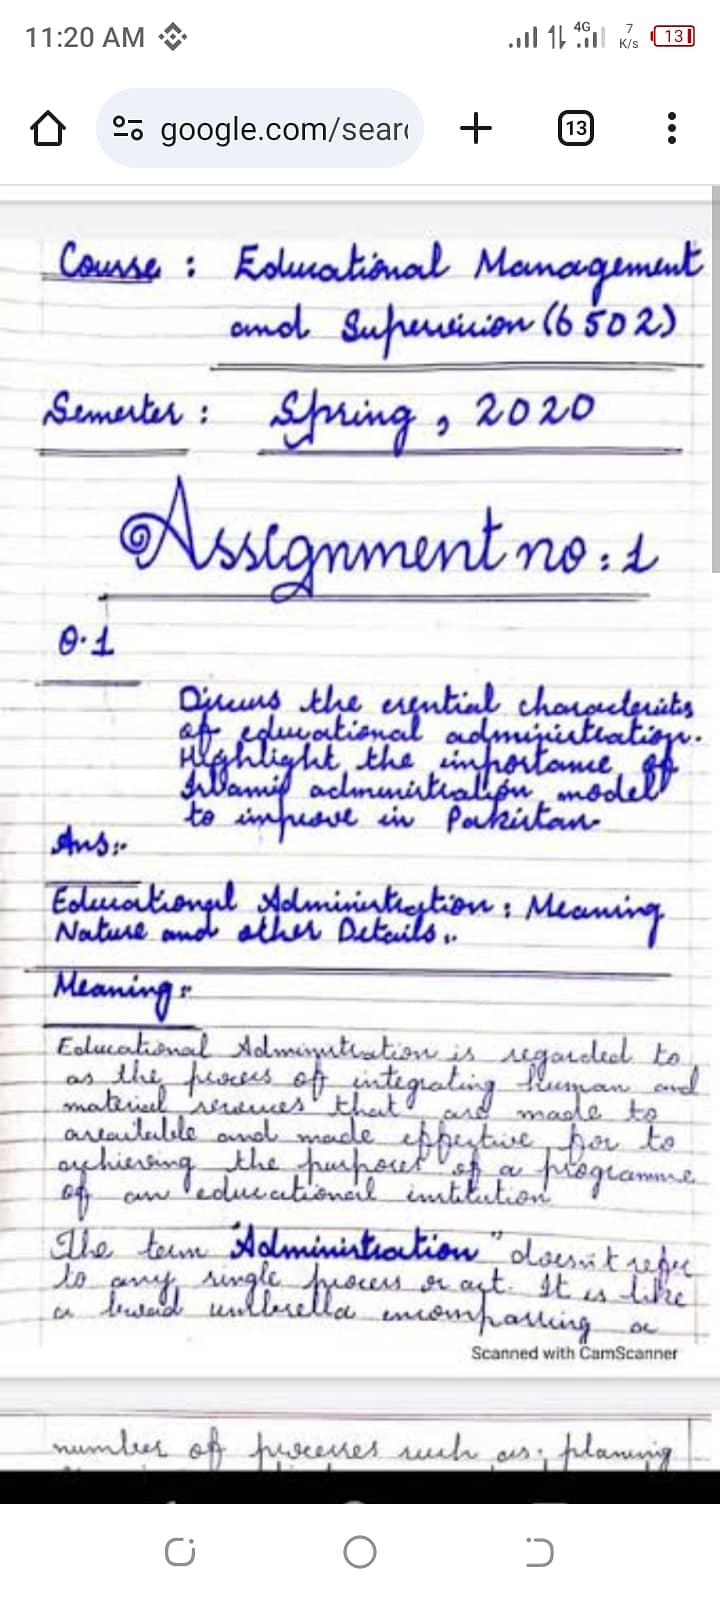 11:20 AM
4G
7
K/s
13
google.com/sear
13
Course : Educational Management
and Supervision (6502)
Semester : Spring, 2020
Assignment no : 1
Q.1
Discuss the esential characteristics
of educational administration.
Highlight the importance of
Islamic administration model
to improve in Pakistan
Ans:-
Educational Administration : Meaning
Nature and other Details :-
Meaning :-
Educational Administration is regarded to
as the process of integrating human and
material resources that are made to
available and made effective for to
achieving the purposes of a programme
of an educational institution
The term "Administration" doesn't refer
to any single process or act. It is like
a broad umbrella encompassing
Scanned with CamScanner
number of processes such as; planning